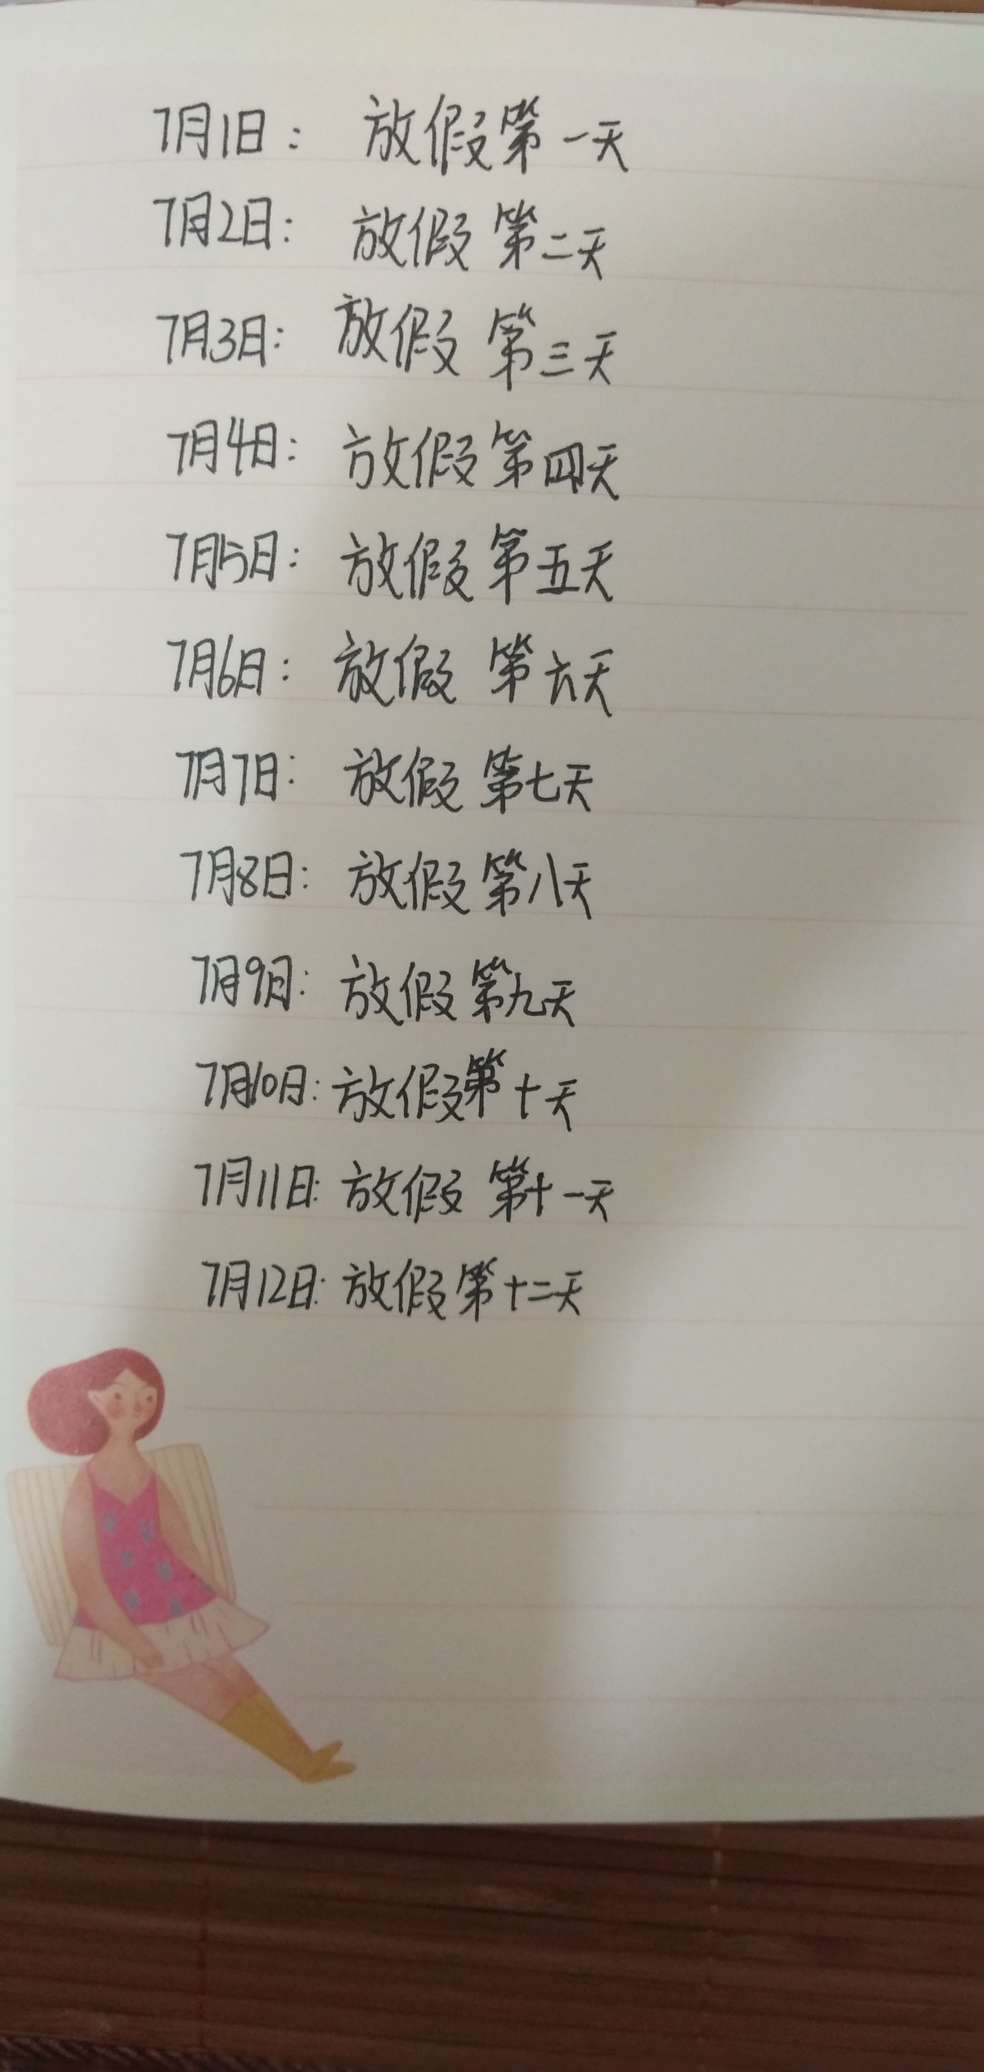 7月1日：放假第一天
7月2日：放假第二天
7月3日：放假第三天
7月4日：放假第四天
7月5日：放假第五天
7月6日：放假第六天
7月7日：放假第七天
7月8日：放假第八天
7月9日：放假第九天
7月10日：放假第十天
7月11日：放假第十一天
7月12日：放假第十二天